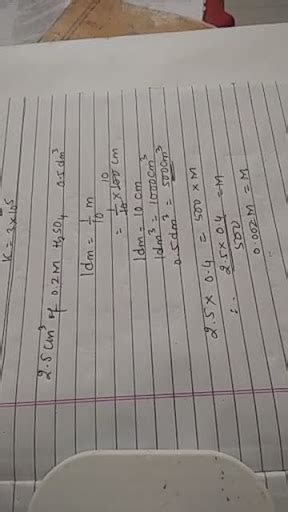 K = 3x10⁵
2.5 cm³ of 0.2 M H₂SO₄ 0.5 dm³
1 dm = 1/10 m
= 1/10 x 100 cm 10
1 dm = 10 cm
1 dm³ = 1000 cm³
0.5 dm³ = 500 cm³
2.5 x 0.4 = 500 x M
∴ 2.5 x 0.4 / 500 = M
0.002 M = M